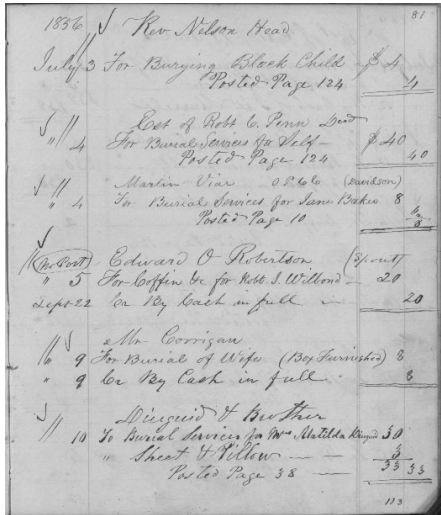 81
1856 Rev Nelson Head
July 3 For Burying Black Child - $ 4
Posted Page 124 4
Est of Robt C. Penn Decd
" 4 For Burial Services for Self - $ 40
Posted Page 124 40
Martin Viar (Davidson)
" 4 For Burial Services for Jane Baker 8
Posted Page 10 8
Edward O Robertson (Spout)
" 5 For Coffin &c for Robt. S. - 20
Sept 22 Cr By Cash in full 20
Mr. Corrigan
" 9 For Burial of Wife (Box Furnished) 8
" 9 Cr By Cash in full 8
Diuguid & Brother
" 10 To Burial Services for Mrs Matilda Diuguid 30
" Sheet & Pillow — — 3
Posted Page 38 — 33 33
113